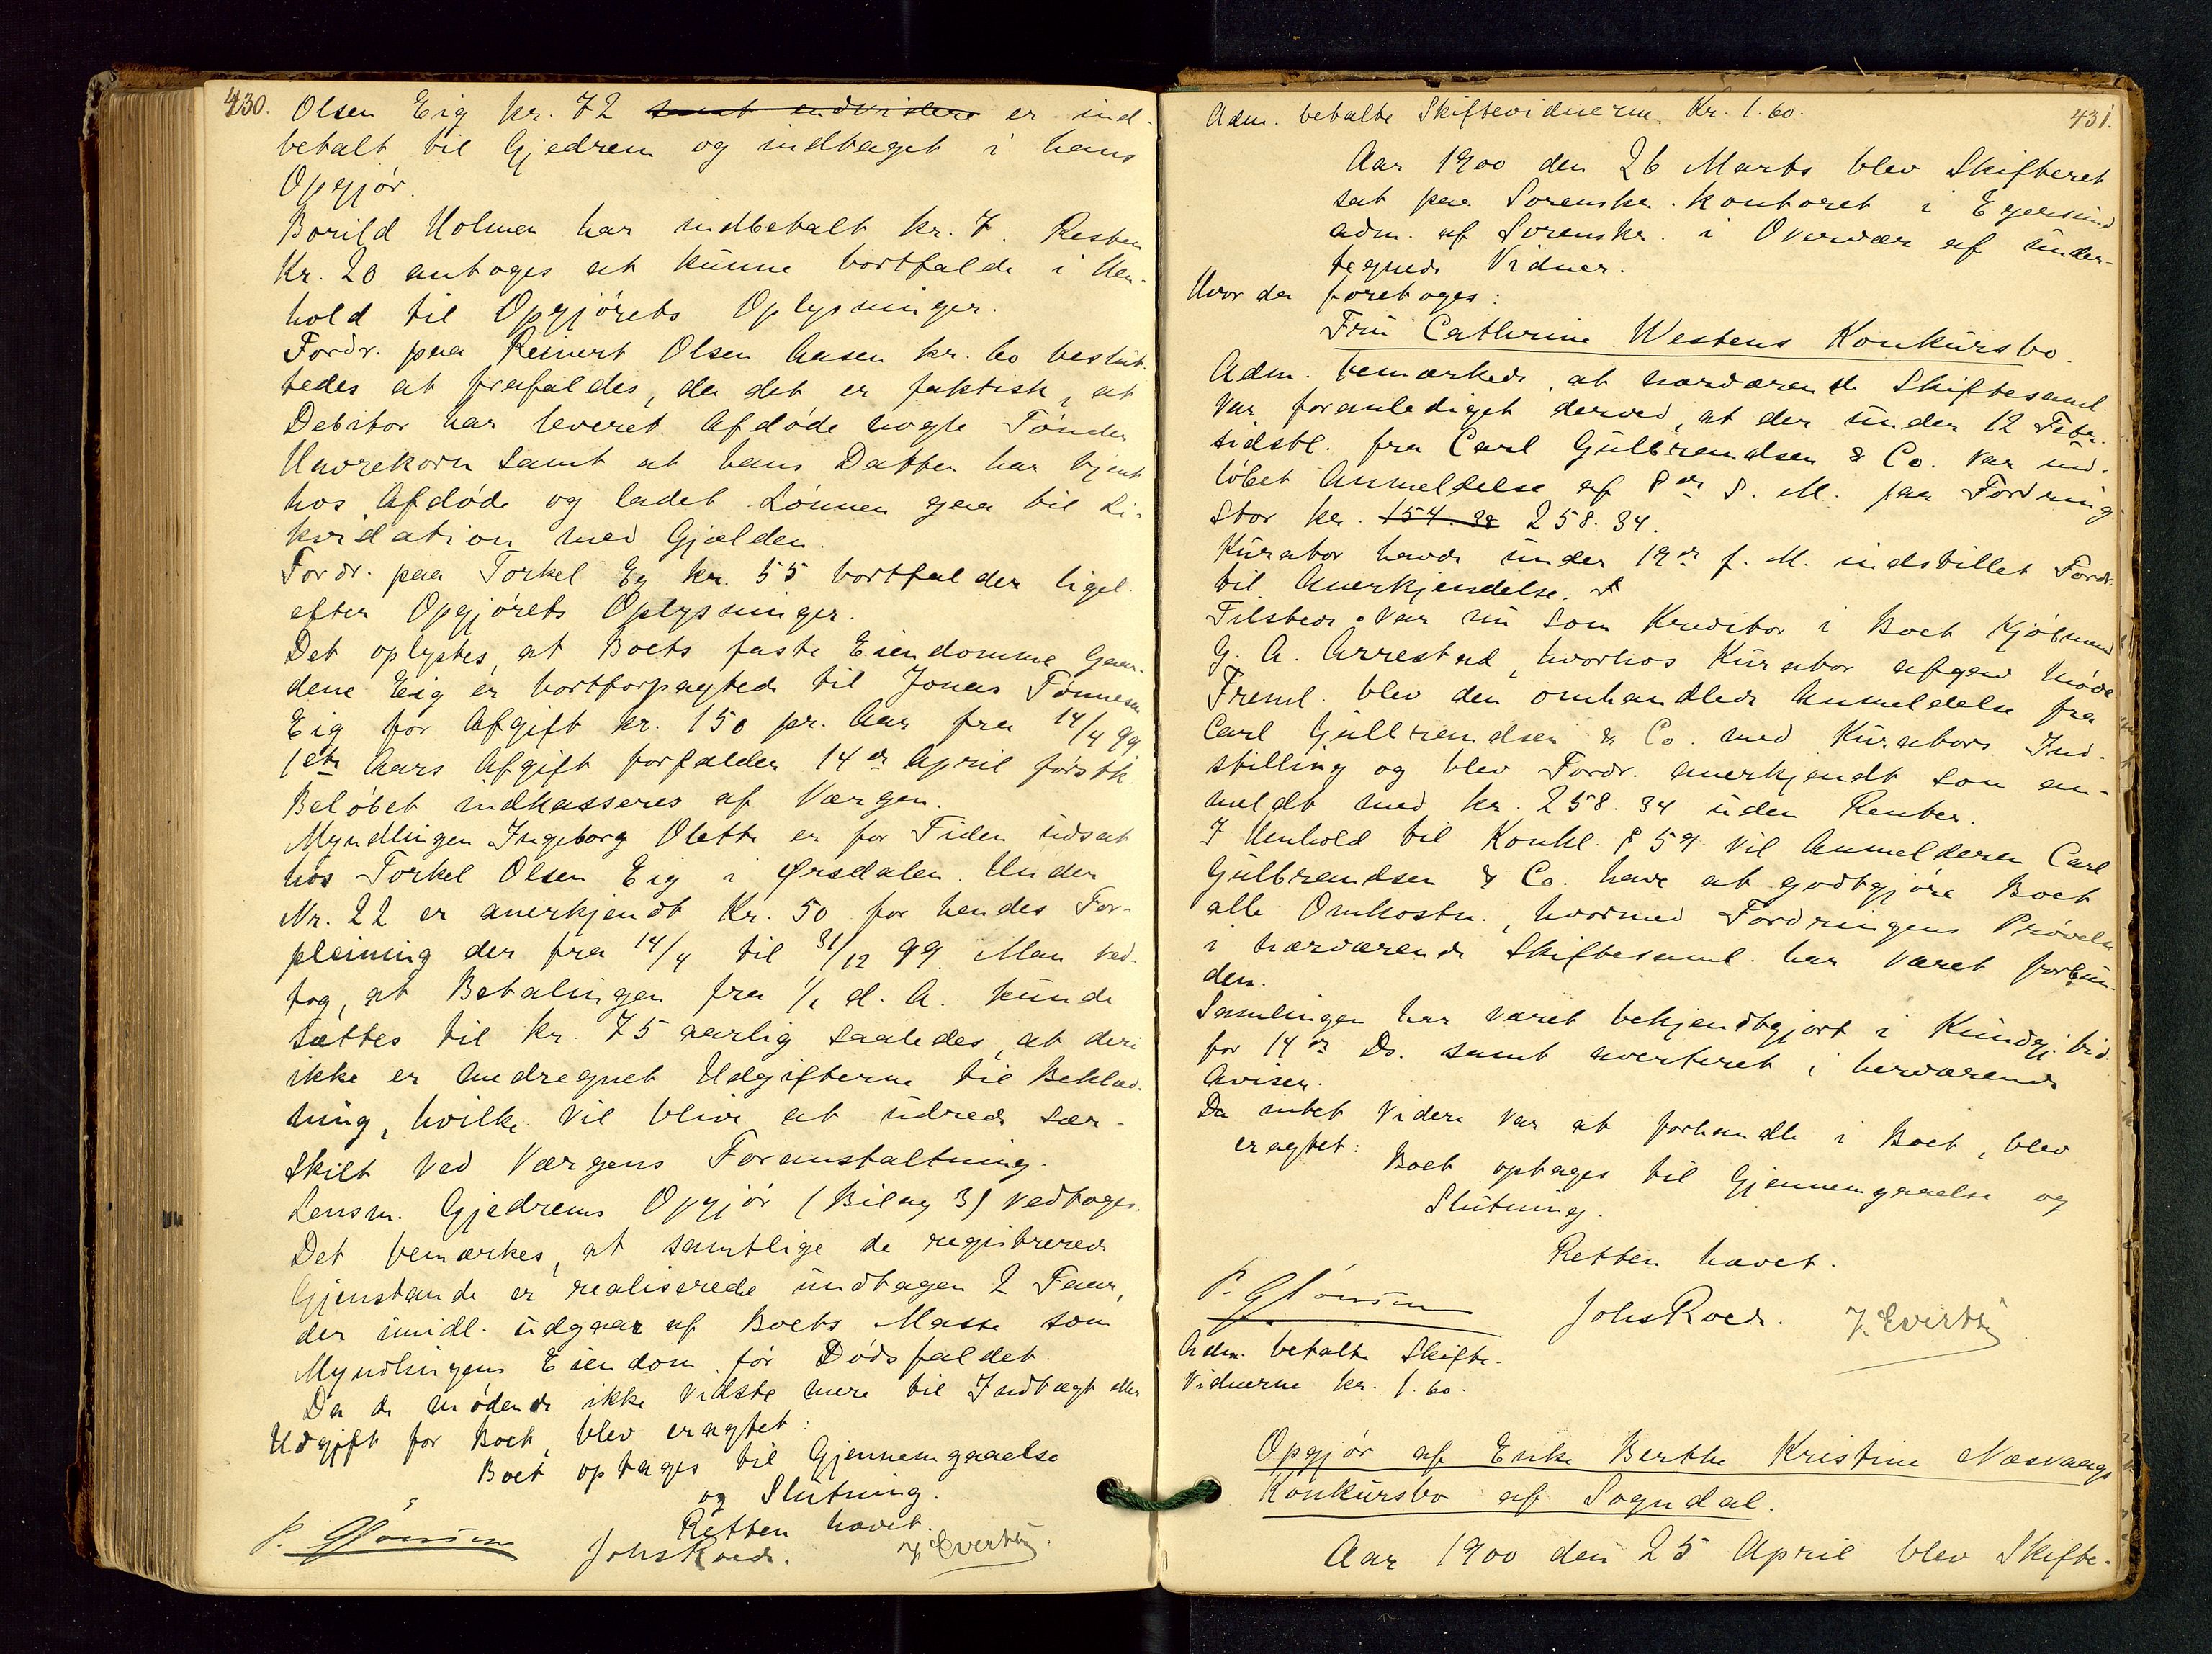 430.
Olsen Eig kr. 72 samt endvidere er ind-
betalt til Gjedrem og indtaget i hans
Opgjør.
Borild Holmen har indbetalt kr. 7. Resten
Kr. 20 antoges at kunne bortfalde i Hen-
hold til Opgjørets Oplysninger.
Fordr. paa Reinert Olsen Aasen kr. 60 beslut-
tedes at frafaldes, da det er faktisk, at
Debitor har leveret Afdøde nogle Tønder
Havrekorn samt at hans Datter har tjent
hos Afdøde og ladet Lønnen gaa til Li-
kvidation med Gjælden.
Fordr. paa Torkel Eg kr. 55 bortfalder ligel.
efter Opgjørets Oplysninger.
Det oplystes, at Boets faste Eiendomme Gaar-
dene Eig er bortforpagtede til Jonas Tønnesen
Eig for Afgift kr. 150 pr. Aar fra 14/4 99
1ste Aars Afgift forfalder 14de April førstk.
Beløbet indkasseres af Værgen.
Myndlingen Ingeborg Olette er for Tiden udsat
hos Torkel Olsen Eig i Ørsdalen. Under
Nr. 22 er anerkjendt Kr. 50 for hendes For-
pleining der fra 14/4 til 31/12 99. Man ved-
tog, at Betalingen fra 1/1 d. A. kunde
sættes til kr. 75 aarlig saaledes, at deri
ikke er medregnet Udgifterne til Beklæd-
ning, hvilke vil blive at udrede sær-
skilt ved Værgens Foranstaltning.
Lensm. Gjedrems Opgjør (Bilag 3) vedtoges.
Det bemærkes, at samtlige de registrerede
Gjenstande er realiserede undtagen 2 Faar,
der imidl. udgaar af Boets Masse som
Myndlingens Eiendom før Dødsfaldet.
Da de mødende ikke vidste mere til Indtægt eller
Udgift for Boet, blev eragtet:
Boet optages til Gjennemgaaelse
og Slutning.
Retten hævet.
JohsRoed.
431.
Adm. betalte Skiftevidnerne Kr. 1.60.
Aar 1900 den 26 Marts blev Skifteret
sat paa Sorenskr. kontoret i Egersund
adm. af Sorenskr. i Overvær af under-
tegnede Vidner.
Hvor da foretoges:
Fru Cathrine Westens Konkursbo.
Adm. bemærkede, at nærværende Skiftesaml.
var foranlediget derved, at der under 12 Febr.
sidstl. fra Carl Gulbrandsen & Co. var ind-
løbet Anmeldelse af 8de s. M. paa Fordring
stor kr. 154.38 258.34.
Kurator havde under 19de f. M. indstillet Fordr.
til Anerkjendelse.
Tilstede var nu som Kreditor i Boet Kjøbmand
G. A. Arrestad, hvorhos Kurator afgav Møde
Freml. blev den omhandlede Anmeldelse fra
Carl Gulbrandsen & Co. med Kurators Ind-
stilling og blev Fordr. anerkjendt som an-
meldt med kr. 258.34 uden Renter.
I Henhold til Konkl. § 59 vil Anmelderen Carl
Gulbrandsen & Co. have at godtgjøre Boet
alle Omkostn., hvormed Fordringens Prøvelse
i nærværende Skiftesaml. har været forbun-
den.
Samlingen har været bekjendtgjort i Kundgj. tid.
for 14de Ds. samt averteret i herværende
Aviser.
Da intet videre var at forhandle i Boet, blev
eragtet:
Boet optages til Gjennemgaaelse og
Slutning.
Retten hævet.
JohsRoed.
Adm. betalte Skifte-
vidnerne kr. 1.60.
Opgjør af Enke Berthe Kristine Næsvaags
Konkursbo af Sogndal.
Aar 1900 den 25 April blev Skifte-